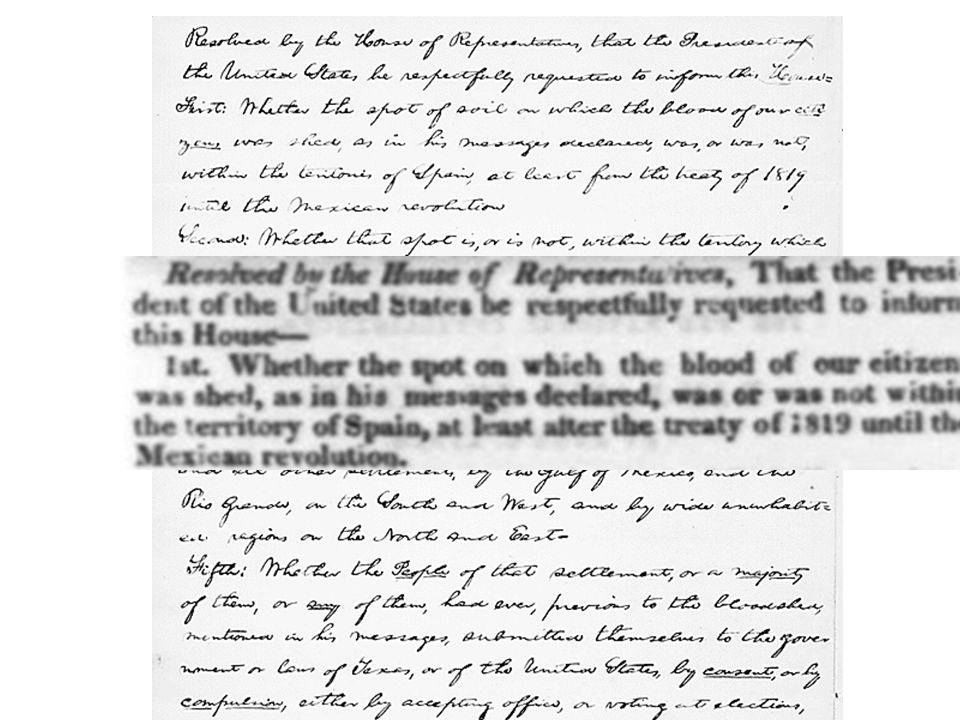 Resolved by the House of Representatives, that the President of
the United States be respectfully requested to inform this House=
First: Whether the spot of soil on which the blood of our citi
zens was shed, as in his messages declared, was, or was not,
within the teritories of Spain, at least from the treaty of 1819
until the Mexican revolution
Second: Whether that spot is, or is not, within the teritory which
Resolved by the House of Representatives, That the Presi-
dent of the United States be respectfully requested to inform
this House—
1st. Whether the spot on which the blood of our citizens
was shed, as in his messages declared, was or was not within
the territory of Spain, at least after the treaty of 1819 until the
Mexican revolution.
and all other settlements, by the Gulf of Mexico, and the
Rio Grande, on the South and West, and by wide uninhabit=
ed regions on the North and East=
Fifth: Whether the People of that settlement, or a majority
of them, or any of them, had ever, previous to the bloodshed,
mentioned in his messages, submitted themselves to the gover
nment or laws of Texas, or of the United States, by consent, or by
compulsion, either by accepting office, or voting at elections,